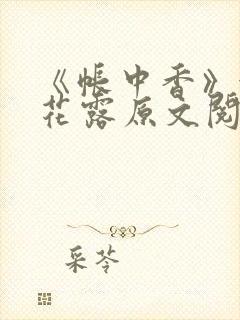 《帐中香》
花露原文阅
采苓